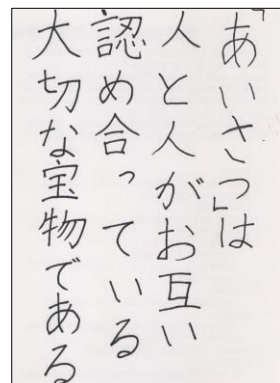 「あいさつ」は
人と人がお互い
認め合っている
大切な宝物である